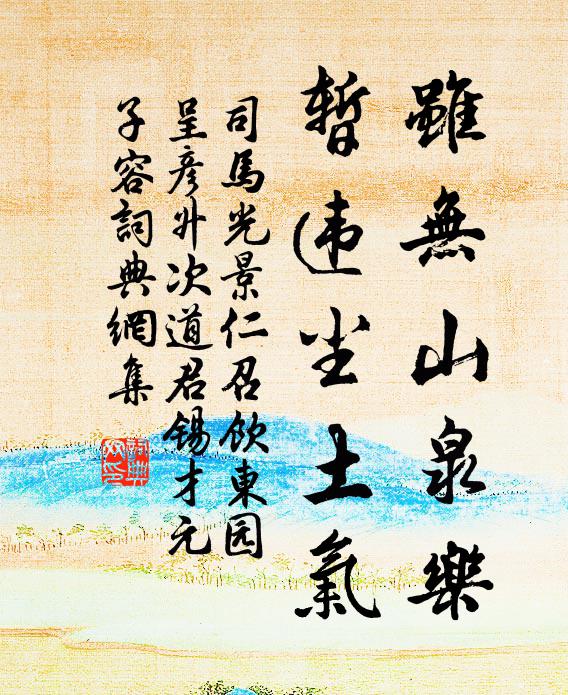 雖無山泉樂
暫违尘土氣
司馬光景仁召飲東园
呈彦升次道君锡才元
子容詞典網集